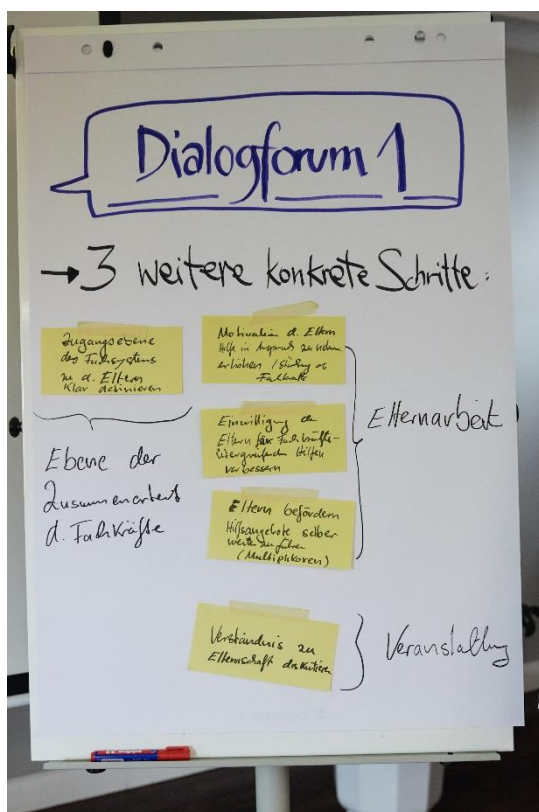 Dialogforum 1
→ 3 weitere konkrete Schritte:
Zugangsebene
des Fachsystems
zu d. Eltern
klar definieren
Ebene der
Zusammenarbeit
d. Fachkräfte
Motivation d. Eltern
Hilfe in Anspruch zu nehmen
erhöhen /
Einwilligung der
Eltern für Fachkräfte-
übergreifende Hilfen
verbessern
Eltern befördern
Hilfsangebote selber
weiterzuführen
(Multiplikoren)
Elternarbeit
Verständnis zu
Elternschaft diskutieren
Veranstaltung